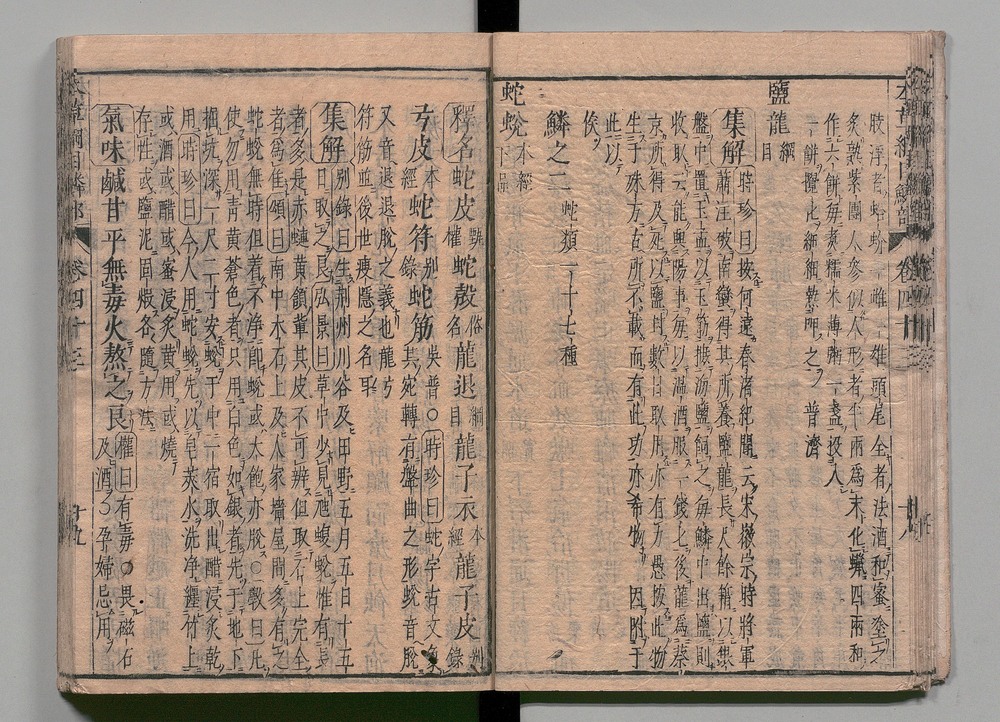 肢浮者蛤蚧一雌一雄頭尾全者法酒和蜜塗之
炙熟紫團人參似人形者半兩爲末化蠟四兩和
作六餅每煮糯米薄粥一盞投入
一餅攪化細細熱呷之 普濟
鹽龍綱目
集解時珍曰按何薳春渚紀聞云宋徽宗時將軍
蕭注破南蠻得其所養鹽龍長尺餘籍以銀
盤中置玉盂以玉筯摭海鹽飼之每鱗中出鹽則
收取云能興陽事每以溫酒服一錢匕後龍爲蔡
京所得及死以鹽封數日取用亦有力愚按此物
生于殊方古所不載而有此功亦希物 因附于
此以
俟
鱗之二 蛇類一十七種
蛇蛻本經下品
釋名蛇皮甄權蛇殼俗名龍退綱目龍子衣本經龍子皮別錄
弓皮本經蛇符別錄蛇筋吳普○時珍曰蛇字古文象
其宛轉有盤曲之形蛻音脫
又音退退脫之義也龍弓
符筋並後世廋隱之名耳
集解別錄曰生荆州川谷及田野五月五日十五
日取之良弘景曰草中少見虺蝮蛻惟有長
者多是赤蟣黃頷輩其皮不可辨但取石上完全
者爲佳頌曰南中木石上及人家墻屋間多有之
蛇蛻無時但着不淨卽蛻或大飽亦脫○斆曰凡
使勿用青黃蒼色者只用白色如銀者先于地下
掘坑深一尺二寸安蛻于中一宿取出醋浸炙乾
用時珍曰今人用蛇蛻先以皂莢水洗净纏竹上
或酒或醋或蜜浸炙黃用或燒
存性或鹽泥固煅各隨方法
氣味鹹甘平無毒火熬之良權曰有毒○畏磁石
及酒○孕婦忌用